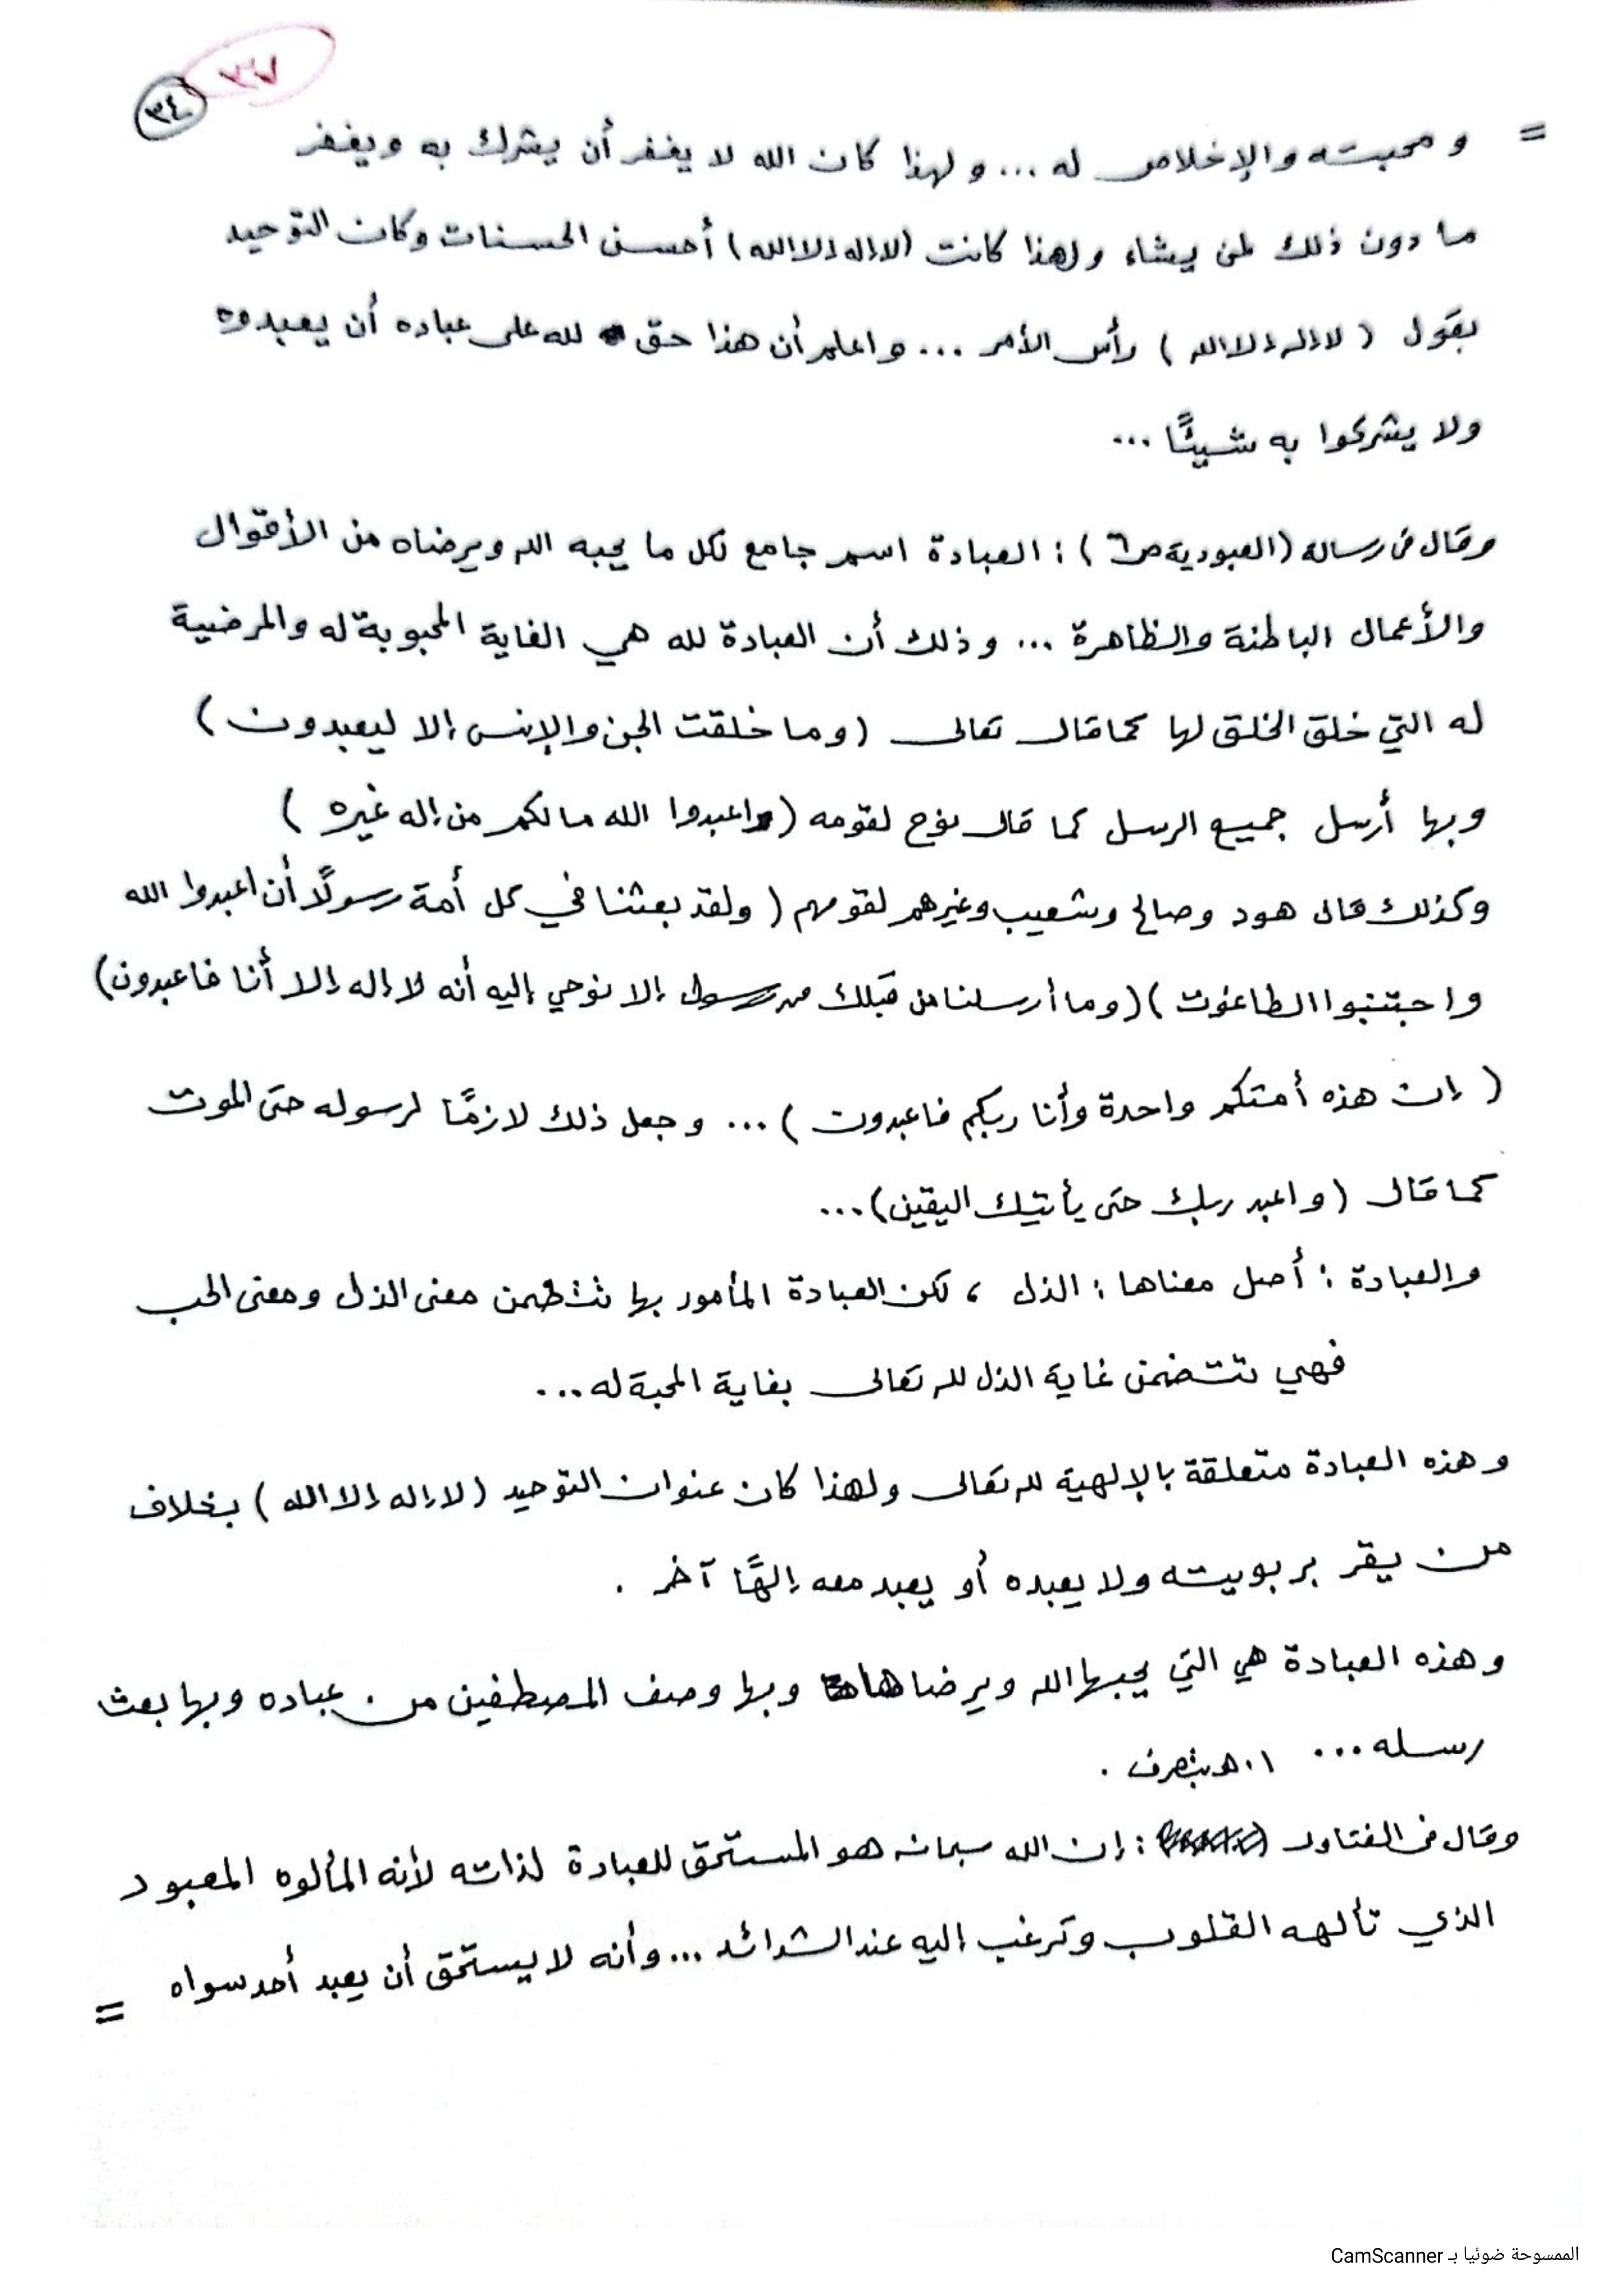 ٣٧
٣٤
= ومحبته والإخلاص له ... ولهذا كان الله لا يغفر أن يشرك به ويغفر
ما دون ذلك لمن يشاء ولهذا كانت (لا إله إلا الله) أحسن الحسنات وكان التوحيد
بقول (لا إله إلا الله) رأس الأمر ... واعلم أن هذا حق لله على عباده أن يعبدوه
ولا يشركوا به شيئًا ...
وقال في رسالة (العبودية ص٦) : العبادة اسم جامع لكل ما يحبه الله ويرضاه من الأقوال
والأعمال الباطنة والظاهرة ... وذلك أن العبادة لله هي الغاية المحبوبة له والمرضية
له التي خلق الخلق لها كما قال تعالى (وما خلقت الجن والإنس إلا ليعبدون)
وبها أرسل جميع الرسل كما قال نوح لقومه (اعبدوا الله مالكم من إله غيره)
وكذلك قال هود وصالح وشعيب وغيرهم لقومهم (ولقد بعثنا في كل أمة رسولًا أن اعبدوا الله
واجتنبوا الطاغوت) (وما أرسلنا من قبلك من رسول إلا نوحي إليه أنه لا إله إلا أنا فاعبدون)
(إن هذه أمتكم واحدة وأنا ربكم فاعبدون) ... وجعل ذلك لازمًا لرسوله حتى الموت
كما قال (واعبد ربك حتى يأتيك اليقين) ...
والعبادة : أصل معناها : الذل ، لكن العبادة المأمور بها تتضمن معنى الذل ومعنى الحب
فهي تتضمن غاية الذل لله تعالى بغاية المحبة له ...
وهذه العبادة متعلقة بالإلهية لله تعالى ولهذا كان عنوان التوحيد (لا إله إلا الله) بخلاف
من يقر بربوبيته ولا يعبده أو يعبد معه إلهًا آخر .
وهذه العبادة هي التي يحبها الله ويرضاها وبها وصف المصطفين من عباده وبها بعث
رسله ... ا.هـ بتصرف .
وقال في الفتاوى : إن الله سبحانه هو المستحق للعبادة لذاته لأنه المألوه المعبود
الذي تألهه القلوب وترغب إليه عند الشدائد ... وأنه لا يستحق أن يعبد أحد سواه =
الممسوحة ضوئيا بـ CamScanner